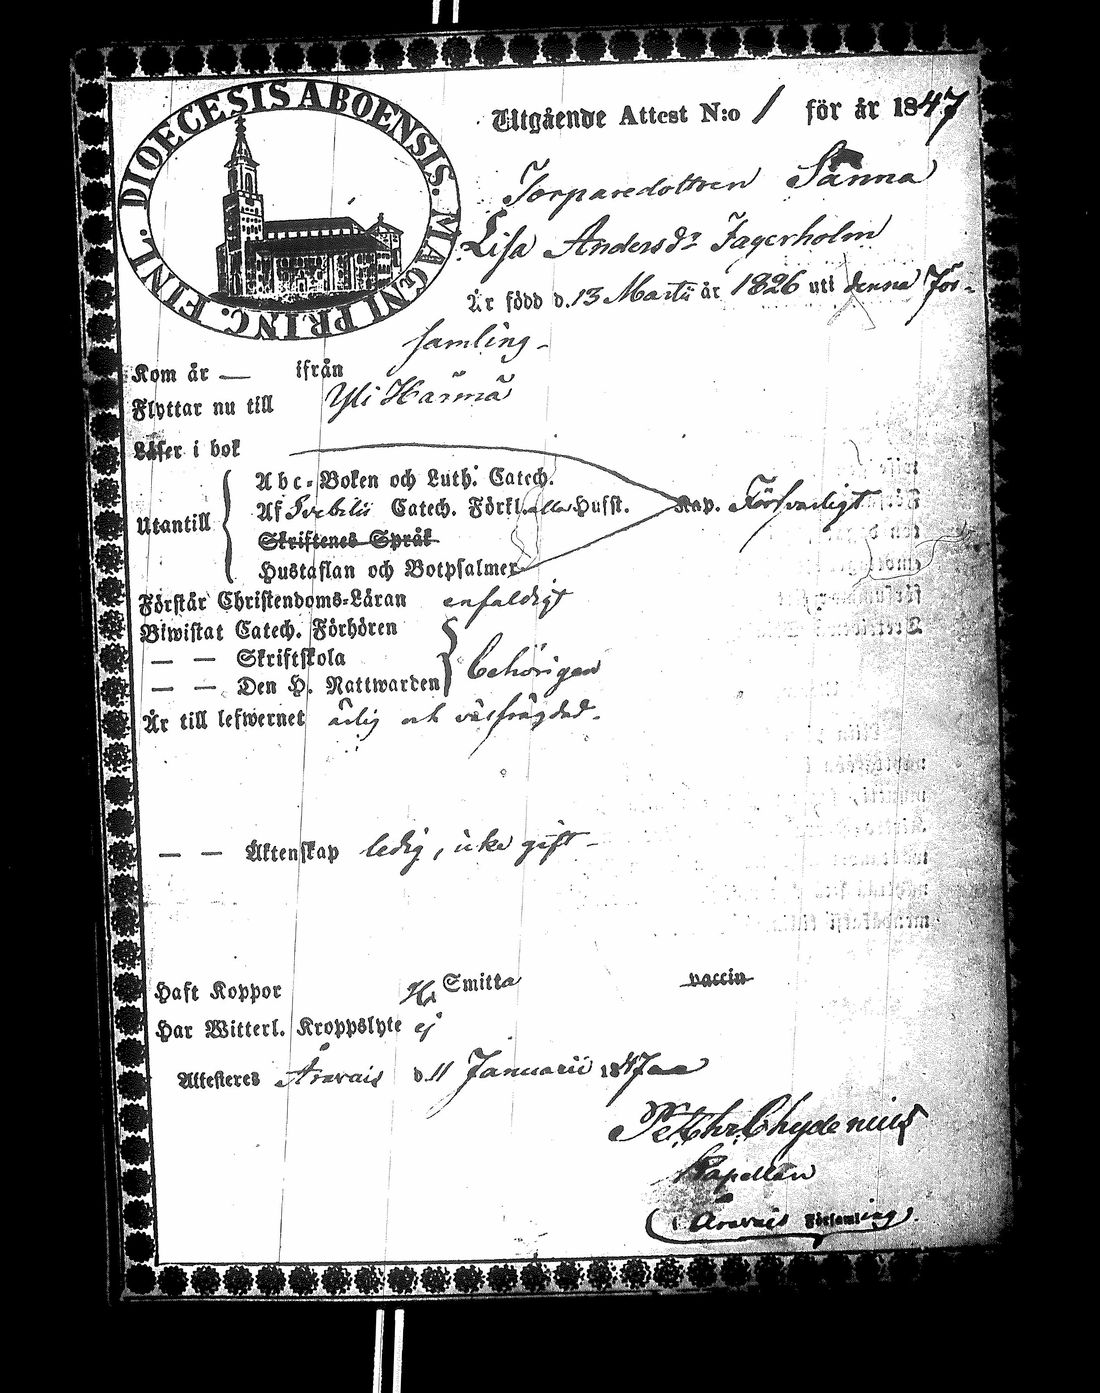 DIOECESIS ABOENSIS. MAGNI PRINC. FINL.
Utgående Attest N:o 1 för år 1847
Torparedottren Sanna
Lisa Anders dr Jagerholm
Är född d. 13 Martii år 1826 uti denna För-
samling.
Kom år — ifrån
Flyttar nu till Yli Härmä
Läser i bok
Abc-Boken och Luth. Catech.
Utantill Af Svebilii Catech. Förkl. Hufst. Kap. Försvarligt
Skriftenes Språk
Hustaflan och Botpsalmer
Förstår Christendoms-Läran enfaldigt
Biwistat Catech. Förhören
— — Skriftskola behörigen
— — Den H. Nattwarden
Är till lefwernet ärlig och välfrägdad.
— — Äktenskap ledig, icke gift
Haft Koppor Smitta vaccin
Har Witterl. Kroppslyte ej
Attesteres Åravais d. 11 Januarii 1847
Chydenius
Kapellan
i Åravais Församling.